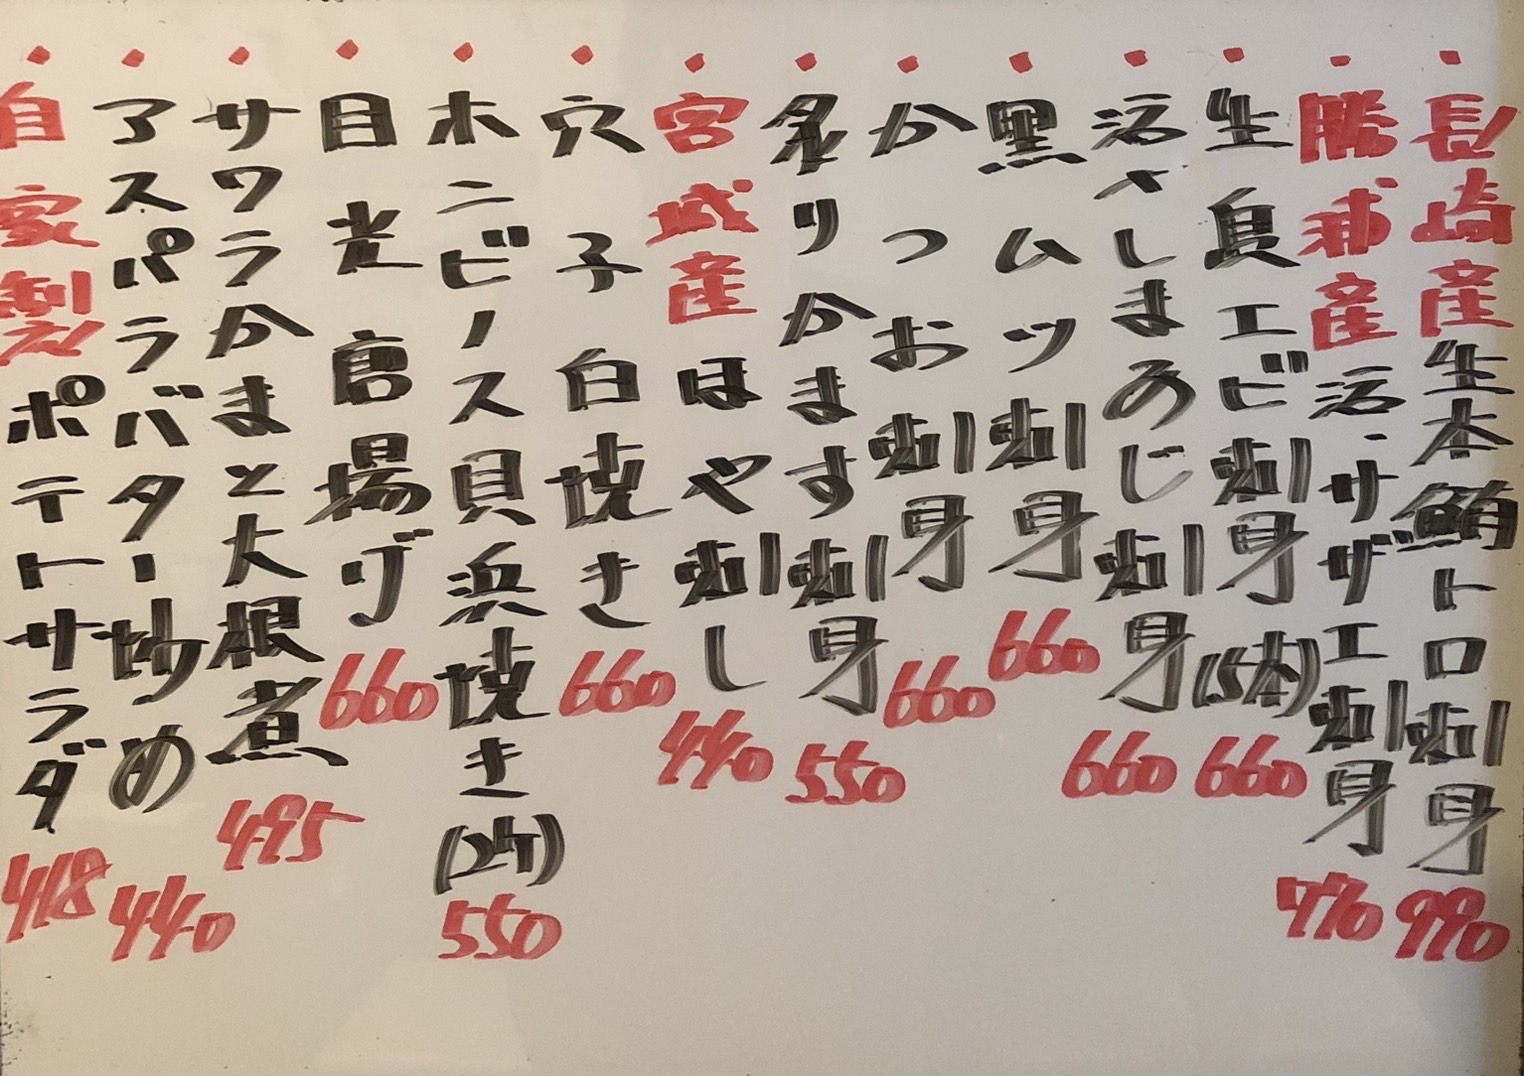 ・長崎産生本鮪トロ刺身 990
・勝浦産活・サザエ刺身 770
・生島エビ刺身(5本) 660
・活〆しまあじ刺身 660
・黒ムツ刺身 660
・かつお刺身 660
・炙りかます刺身 550
・宮城産ほや刺し 440
・穴子白焼き 660
・ホンビノス貝浜焼き(2ケ) 550
・目光唐揚げ 660
・サワラかまと大根煮 495
・アスパラバター炒め 440
・自家製ポテトサラダ 418